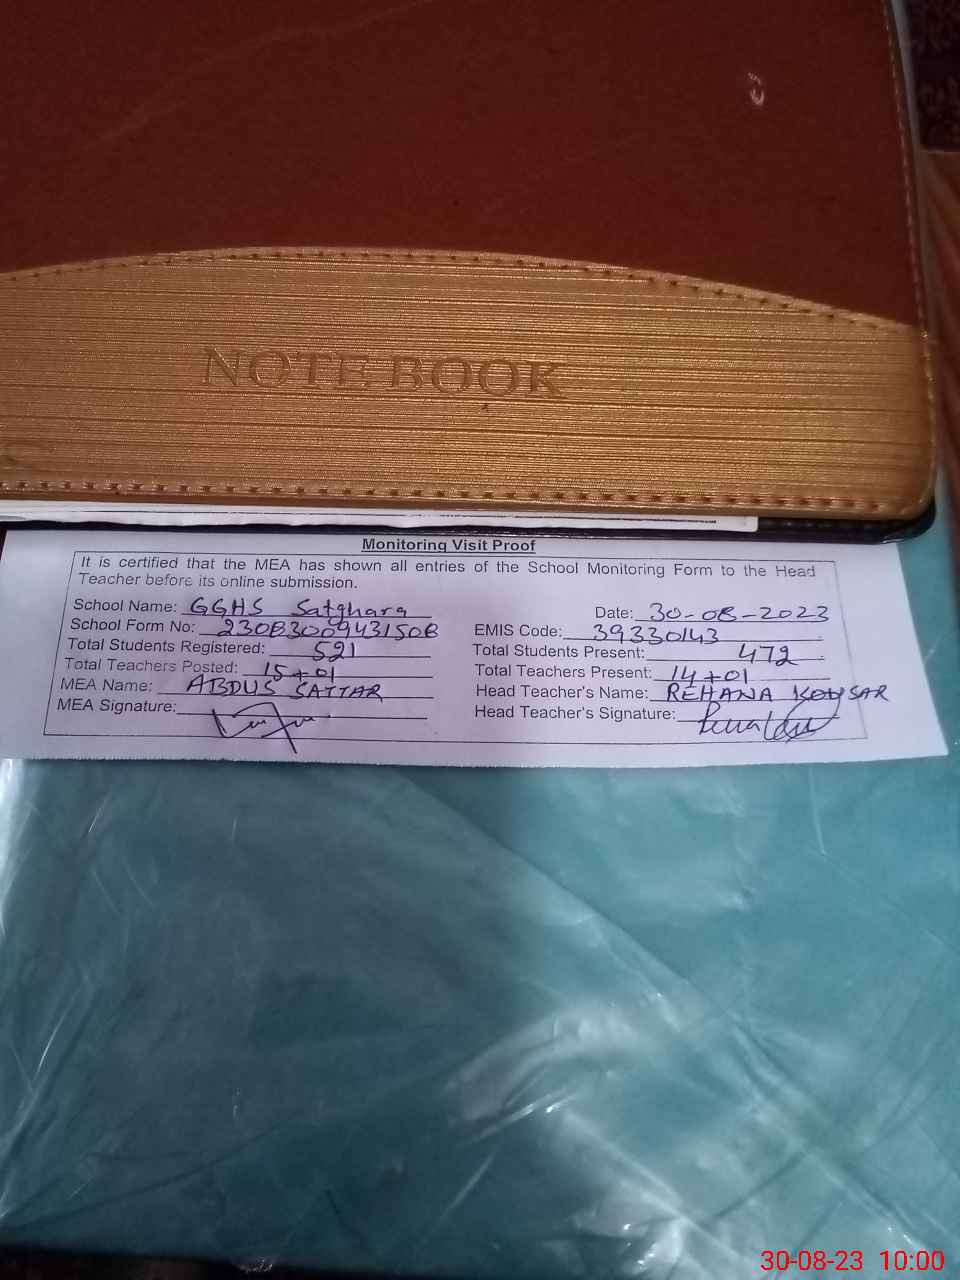 NOTE BOOK
Monitoring Visit Proof
It is certified that the MEA has shown all entries of the School Monitoring Form to the Head
Teacher before its online submission.
School Name: GGHS Satghara
Date: 30-08-2023
School Form No: 23083009431508
EMIS Code: 39330143
Total Students Registered: 521
Total Students Present: 472
Total Teachers Posted: 15+01
Total Teachers Present: 14+01
MEA Name: ABDUS SATTAR
Head Teacher's Name: REHANA KOUSAR
MEA Signature:
Head Teacher's Signature:
30-08-23 10:00